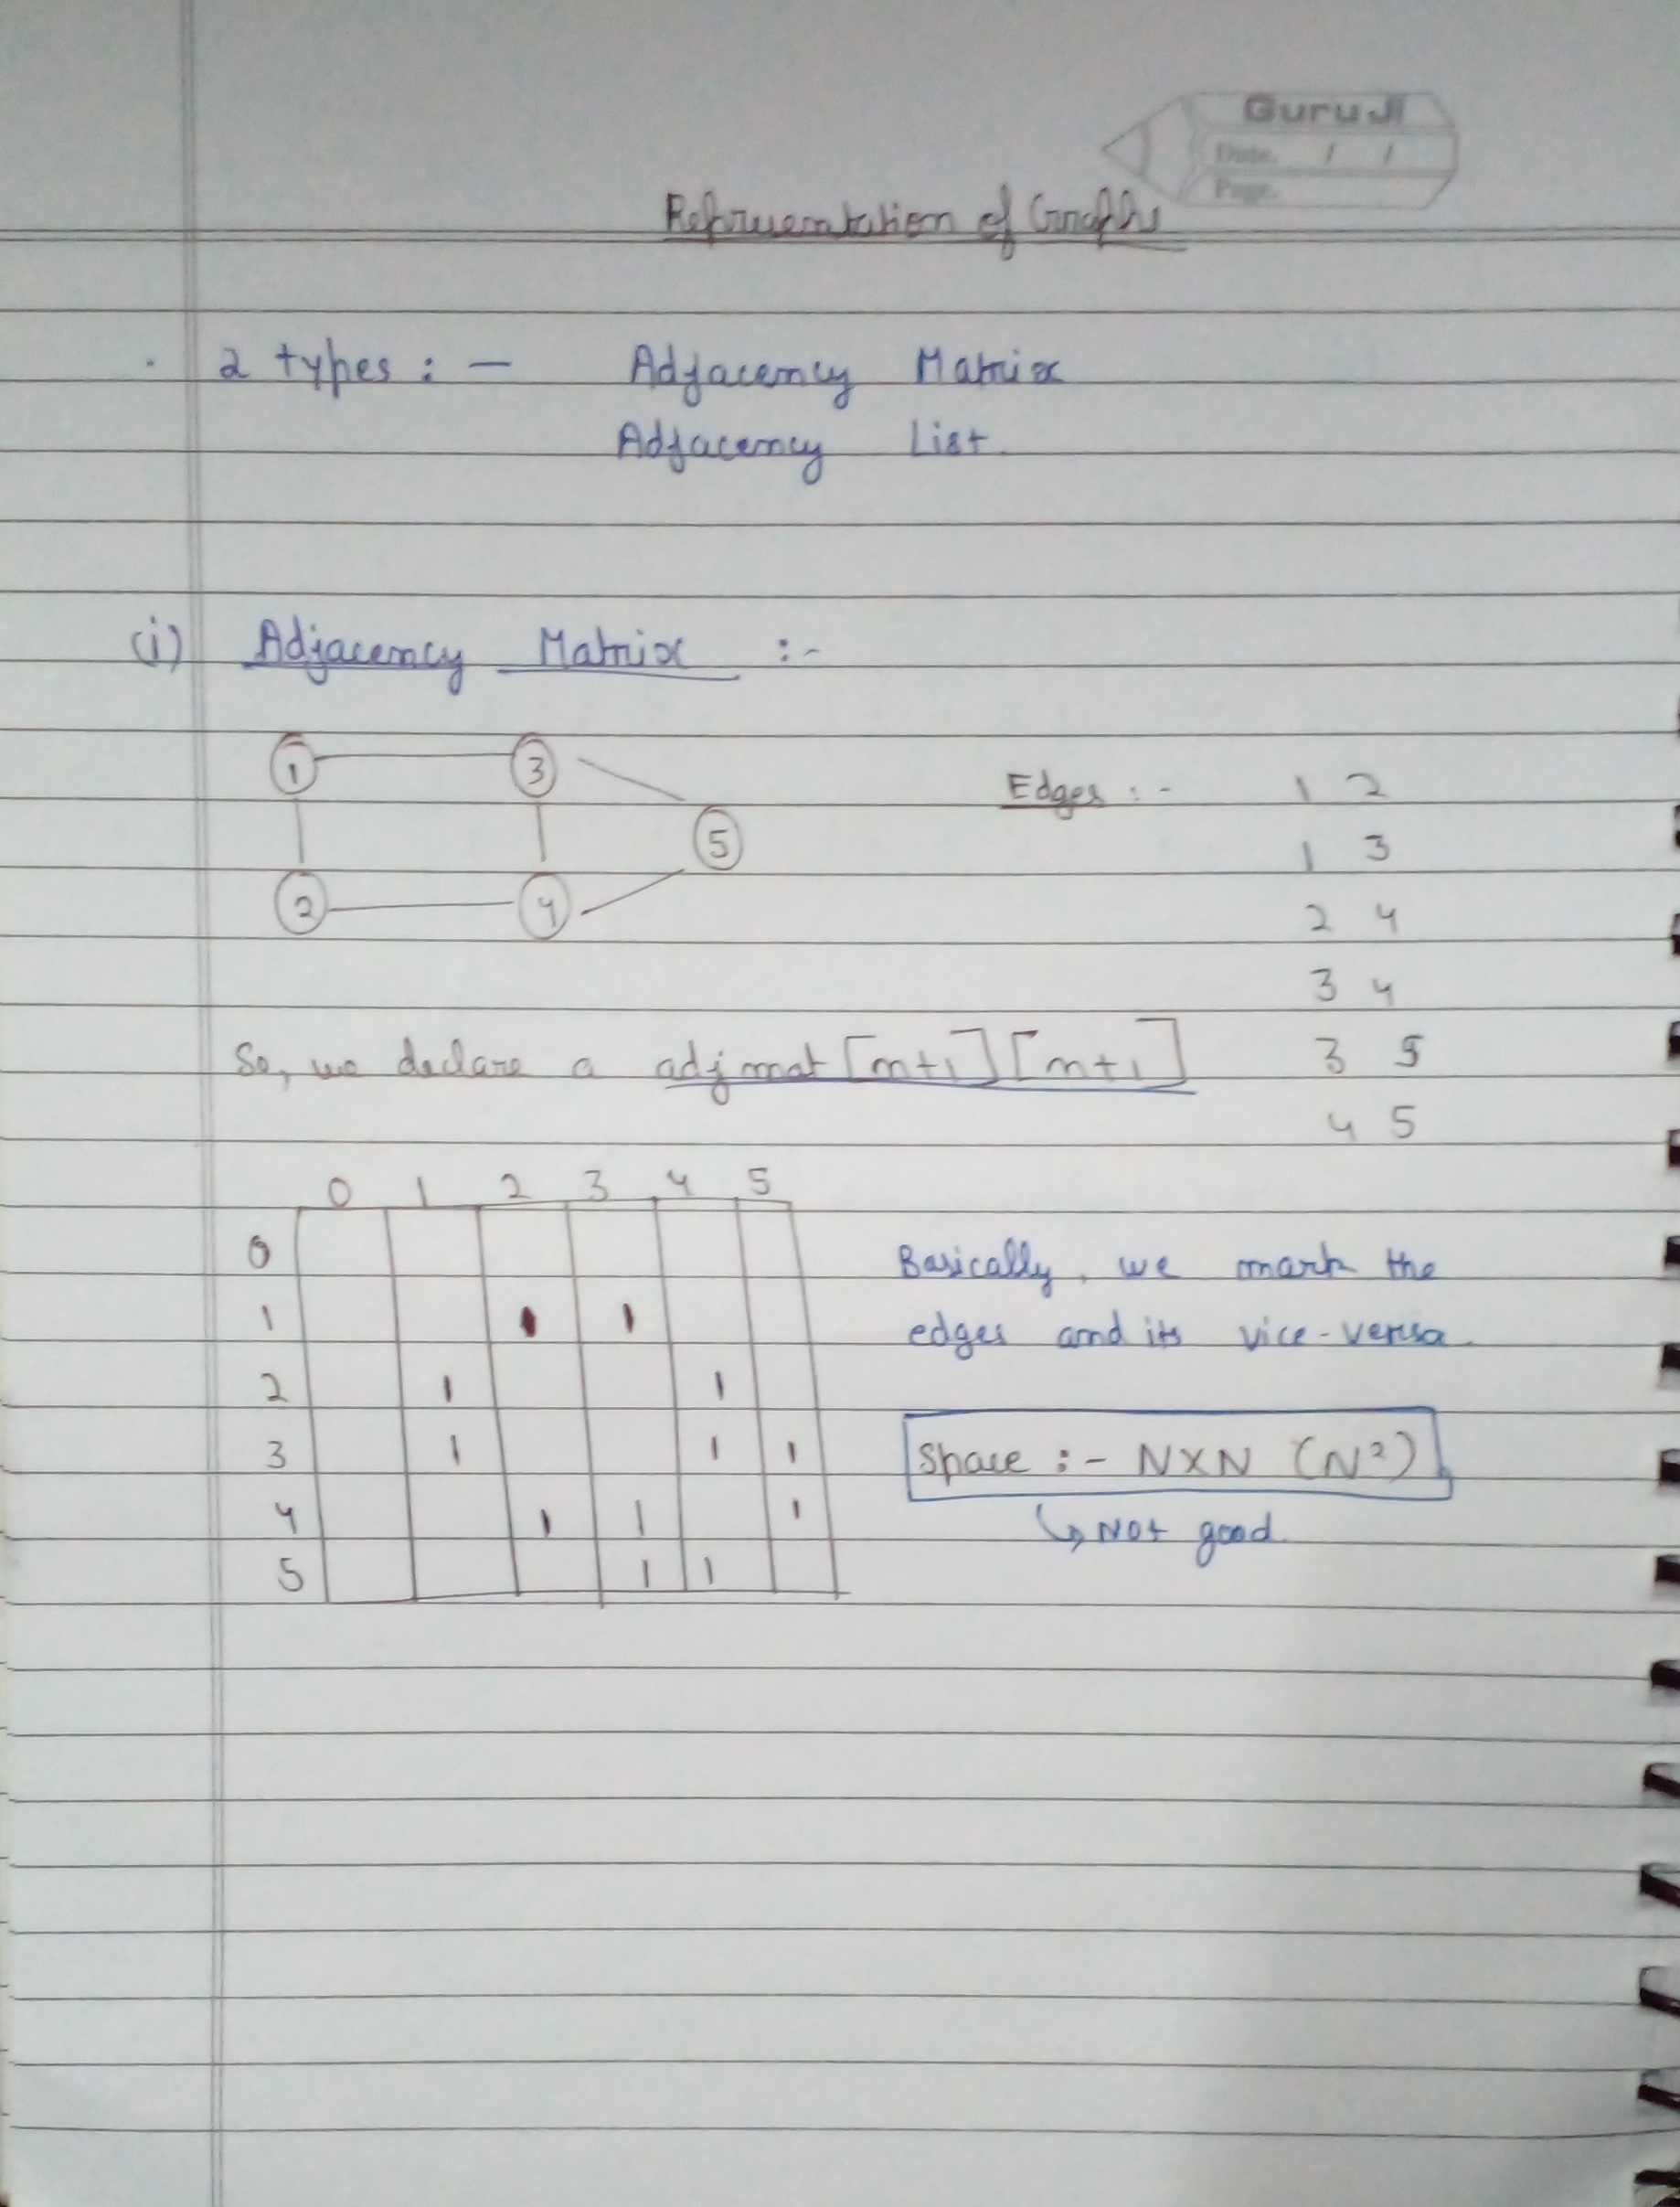 GuruJi
Date. / /
Page.
Representation of Graphs
2 types : - Adjacency Matrix
Adjacency List
(i) Adjacency Matrix :-
1 3
5
2 4
Edges :- 1 2
1 3
2 4
3 4
3 5
4 5
So, we declare a adj mat [n+1][n+1]
0 1 2 3 4 5
0
1 1 1
2 1 1
3 1 1 1
4 1 1 1
5 1 1
Basically, we mark the
edges and its vice-versa
Space :- N×N (N²)
↳ Not good